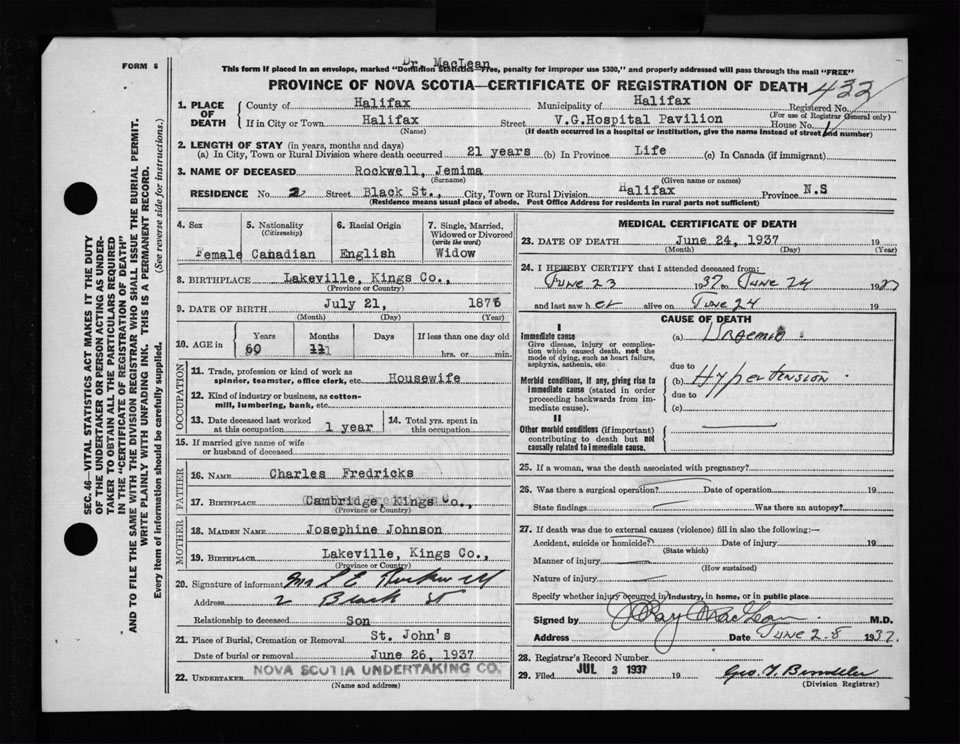 Dr. MacLean
FORM 6
This form if placed in an envelope, marked "Dominion Statistics—Free, penalty for improper use $300," and properly addressed will pass through the mail "FREE"
PROVINCE OF NOVA SCOTIA—CERTIFICATE OF REGISTRATION OF DEATH
432
1. PLACE OF DEATH
County of Halifax Municipality of Halifax Registered No.
(For use of Registrar General only)
If in City or Town Halifax Street V.G.Hospital Pavilion House No.
(Name) (If death occurred in a hospital or institution, give the name instead of street and number)
2. LENGTH OF STAY (in years, months and days)
(a) In City, Town or Rural Division where death occurred 21 years (b) In Province Life (c) In Canada (if immigrant)
3. NAME OF DECEASED Rockwell, Jemima
(Surname) (Given name or names)
RESIDENCE No. 2 Street Black St., City, Town or Rural Division Halifax Province N.S
(Residence means usual place of abode. Post Office Address for residents in rural parts not sufficient)
4. Sex Female
5. Nationality (Citizenship) Canadian
6. Racial Origin English
7. Single, Married, Widowed or Divorced (write the word) Widow
8. BIRTHPLACE Lakeville, Kings Co.,
(Province or Country)
9. DATE OF BIRTH July 21, 1876
(Month) (Day) (Year)
10. AGE in Years Months Days If less than one day old
60 11 hrs. or min.
OCCUPATION
11. Trade, profession or kind of work as spinner, teamster, office clerk, etc. Housewife
12. Kind of industry or business, as cotton-mill, lumbering, bank, etc.
13. Date deceased last worked at this occupation 1 year
14. Total yrs. spent in this occupation
15. If married give name of wife or husband of deceased
FATHER
16. NAME Charles Fredricks
17. BIRTHPLACE Cambridge, Kings Co.,
(Province or Country)
MOTHER
18. MAIDEN NAME Josephine Johnson
19. BIRTHPLACE Lakeville, Kings Co.,
(Province or Country)
20. Signature of informant
Address 2 Black St
Relationship to deceased Son
21. Place of Burial, Cremation or Removal St. John's
Date of burial or removal June 26, 1937
22. UNDERTAKER NOVA SCOTIA UNDERTAKING CO.
(Name and address)
MEDICAL CERTIFICATE OF DEATH
23. DATE OF DEATH June 24, 1937 19
(Month) (Day) (Year)
24. I HEREBY CERTIFY that I attended deceased from:
June 23 1937 to June 24 1937
and last saw her alive on June 24 19
CAUSE OF DEATH
I
Immediate cause
Give disease, injury or complication which caused death, not the mode of dying, such as heart failure, asphyxia, asthenia, etc.
(a) Uraemia
due to
Morbid conditions, if any, giving rise to immediate cause (stated in order proceeding backwards from immediate cause).
(b) Hypertension
due to
(c)
II
Other morbid conditions (if important) contributing to death but not causally related to immediate cause.
25. If a woman, was the death associated with pregnancy?
26. Was there a surgical operation? Date of operation 19
State findings Was there an autopsy?
27. If death was due to external causes (violence) fill in also the following:—
Accident, suicide or homicide? Date of injury 19
(State which)
Manner of injury
(How sustained)
Nature of injury
Specify whether injury occurred in industry, in home, or in public place
Signed by J Ray MacLean M.D.
Address Date June 28 1937.
28. Registrar's Record Number
29. Filed JUL 3 1937 19
(Division Registrar)
SEC. 46—VITAL STATISTICS ACT MAKES IT THE DUTY
OF THE UNDERTAKER OR PERSON ACTING AS UNDER-
TAKER TO OBTAIN ALL THE PARTICULARS REQUIRED
IN THE "CERTIFICATE OF REGISTRATION OF DEATH"
AND TO FILE THE SAME WITH THE DIVISION REGISTRAR WHO SHALL ISSUE THE BURIAL PERMIT.
WRITE PLAINLY WITH UNFADING INK. THIS IS A PERMANENT RECORD.
Every item of information should be carefully supplied. (See reverse side for instructions.)